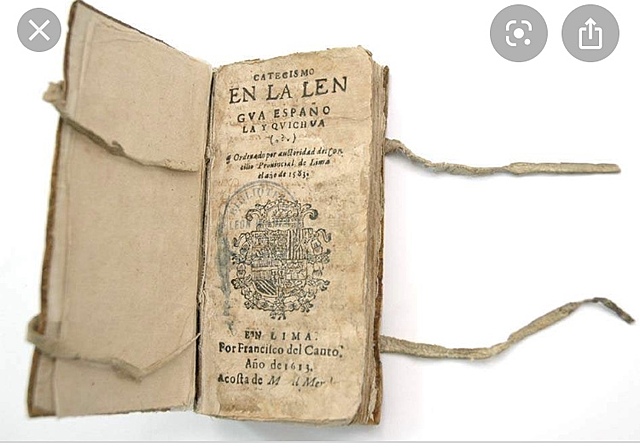 CATECISMO
EN LA LEN
GVA ESPAÑO
LA Y QVICHVA
(.?.)
¶ Ordenado por autoridad del Con
cilio Prouincial de Lima
el año de 1583.
BIBLIOTE
LEON
EN LIMA.
Por Francisco del Canto.
Año de 1613.
Acosta de M